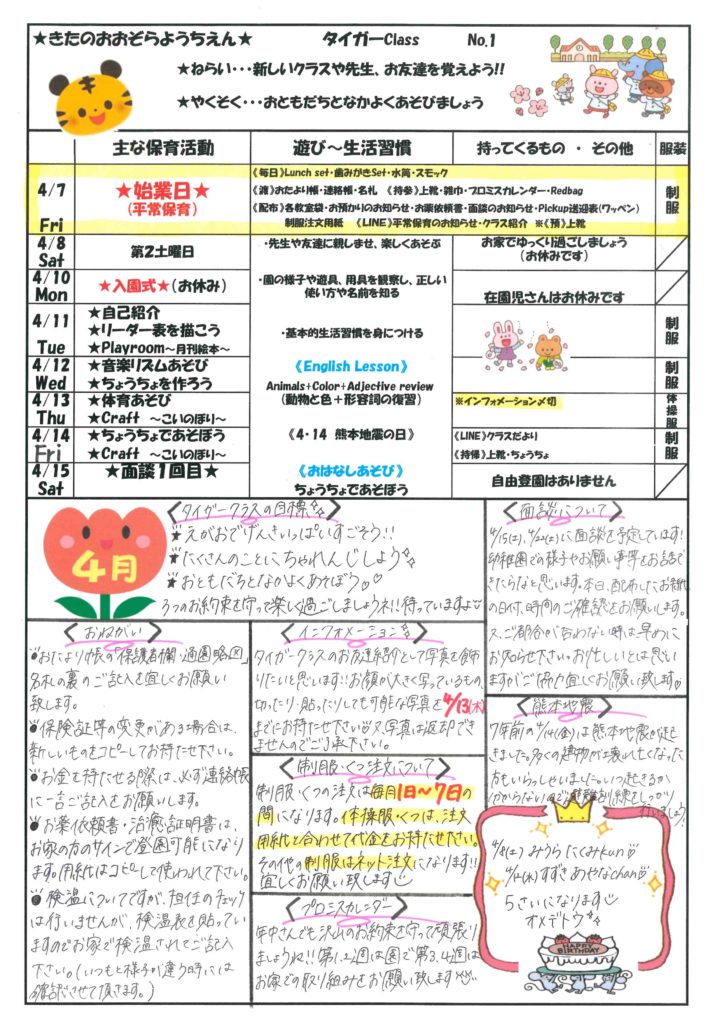 ★きたのおおぞらようちえん★ タイガーClass No.1
★ねらい・・・新しいクラスや先生、お友達を覚えよう!!
★やくそく・・・おともだちとなかよくあそびましょう
主な保育活動 遊び～生活習慣 持ってくるもの ・ その他 服装
4/7 Fri
★始業日★
(平常保育)
《毎日》Lunch set・歯みがきSet・水筒・スモック
《渡》おたより帳・連絡帳・名札 《持参》上靴・雑巾・プロミスカレンダー・Redbag
《配布》各教室袋・お預かりのお知らせ・お薬依頼書・面談のお知らせ・Pickup送迎表(ワッペン)
制服注文用紙 《LINE》平常保育のお知らせ・クラス紹介 ※《預》上靴
制服
4/8 Sat
第2土曜日
・先生や友達に親しませ、楽しくあそぶ
お家でゆっくり過ごしましょう
(お休みです)
4/10 Mon
★入園式★(お休み)
・園の様子や遊具、用具を観察し、正しい
使い方や名前を知る
在園児さんはお休みです
4/11 Tue
★自己紹介
★リーダー表を描こう
★Playroom～月刊絵本～
・基本的生活習慣を身につける
制服
4/12 Wed
★音楽リズムあそび
★ちょうちょを作ろう
《English Lesson》
Animals+Color+Adjective review
(動物と色+形容詞の復習)
制服
4/13 Thu
★体育あそび
★Craft ～こいのぼり～
※インフォメーション〆切
体操服
4/14 Fri
★ちょうちょであそぼう
★Craft ～こいのぼり～
《4・14 熊本地震の日》
《LINE》クラスだより
《持帰》上靴・ちょうちょ
制服
4/15 Sat
★面談1回目★
《おはなしあそび》
ちょうちょであそぼう
自由登園はありません
4月
<タイガークラスの目標>
★えがおでげんきいっぱいすごそう!!
★たくさんのことにちゃれんじしよう
★おともだちとなかよくあそぼう♡♡
3つのお約束を守って楽しく過ごしましょうネ!!待っていますよ
<面談について>
4/15(土)、4/22(土)に面談を予定しています!
幼稚園での様子やお願い事等をお話で
きたらなと思います。本日、配布したお手紙
の日付、時間のご確認をお願いします。
又、ご都合が合わない時は早めに
お知らせ下さい。お忙しいとは思い
ますがご協力宜しくお願い致します♡
<おねがい>
おたより帳の「保護者欄・通園略図」
名札の裏のご記入を宜しくお願い
致します。
保険証等の変更がある場合は、
新しいものをコピーしてお持たせ下さい。
お金を持たせる際は、必ず連絡帳
に一言ご記入をお願いします。
お薬依頼書・治癒証明書は、
お家の方のサインで登園可能になり
ます。用紙はコピーして使われて下さい。
検温についてですが、担任のチェック
は行いませんが、検温表を貼ってい
ますのでお家で検温されてご記入
下さい。(いつもと様子が違う時には
確認させて頂きます。)
<インフォメーション>
タイガークラスのお友達紹介として写真を飾
りたいと思います!!お顔が大きく写っているもの、
切ったり・貼ったりしても可能な写真を4/13(木)
までにお持たせ下さい。又、写真は返却でき
ませんのでご了承下さい。
<制服・くつ注文について>
制服・くつの注文は毎月1日～7日の
間になります。体操服・くつは、注文
用紙と合わせて代金をお持たせ下さい。
その他の制服はネット注文になります!!
宜しくお願い致します
<プロミスカレンダー>
年中さんでも沢山のお約束を守って頑張り
ましょうね!!第1、2週は園で第3、4週は
お家での取り組みをお願い致します
<熊本地震>
7年前の4/14(金)は熊本地震が起
きました。多くの建物が壊れ、亡くなった
方もいらっしゃいました。いつ起きるか
わからないので避難訓練をしっかり
4/8(土) みうら たくみkun
4/6(木) すずき あやなchan♡
5さいになります
オメデトウ
HAPPY BIRTHDAY